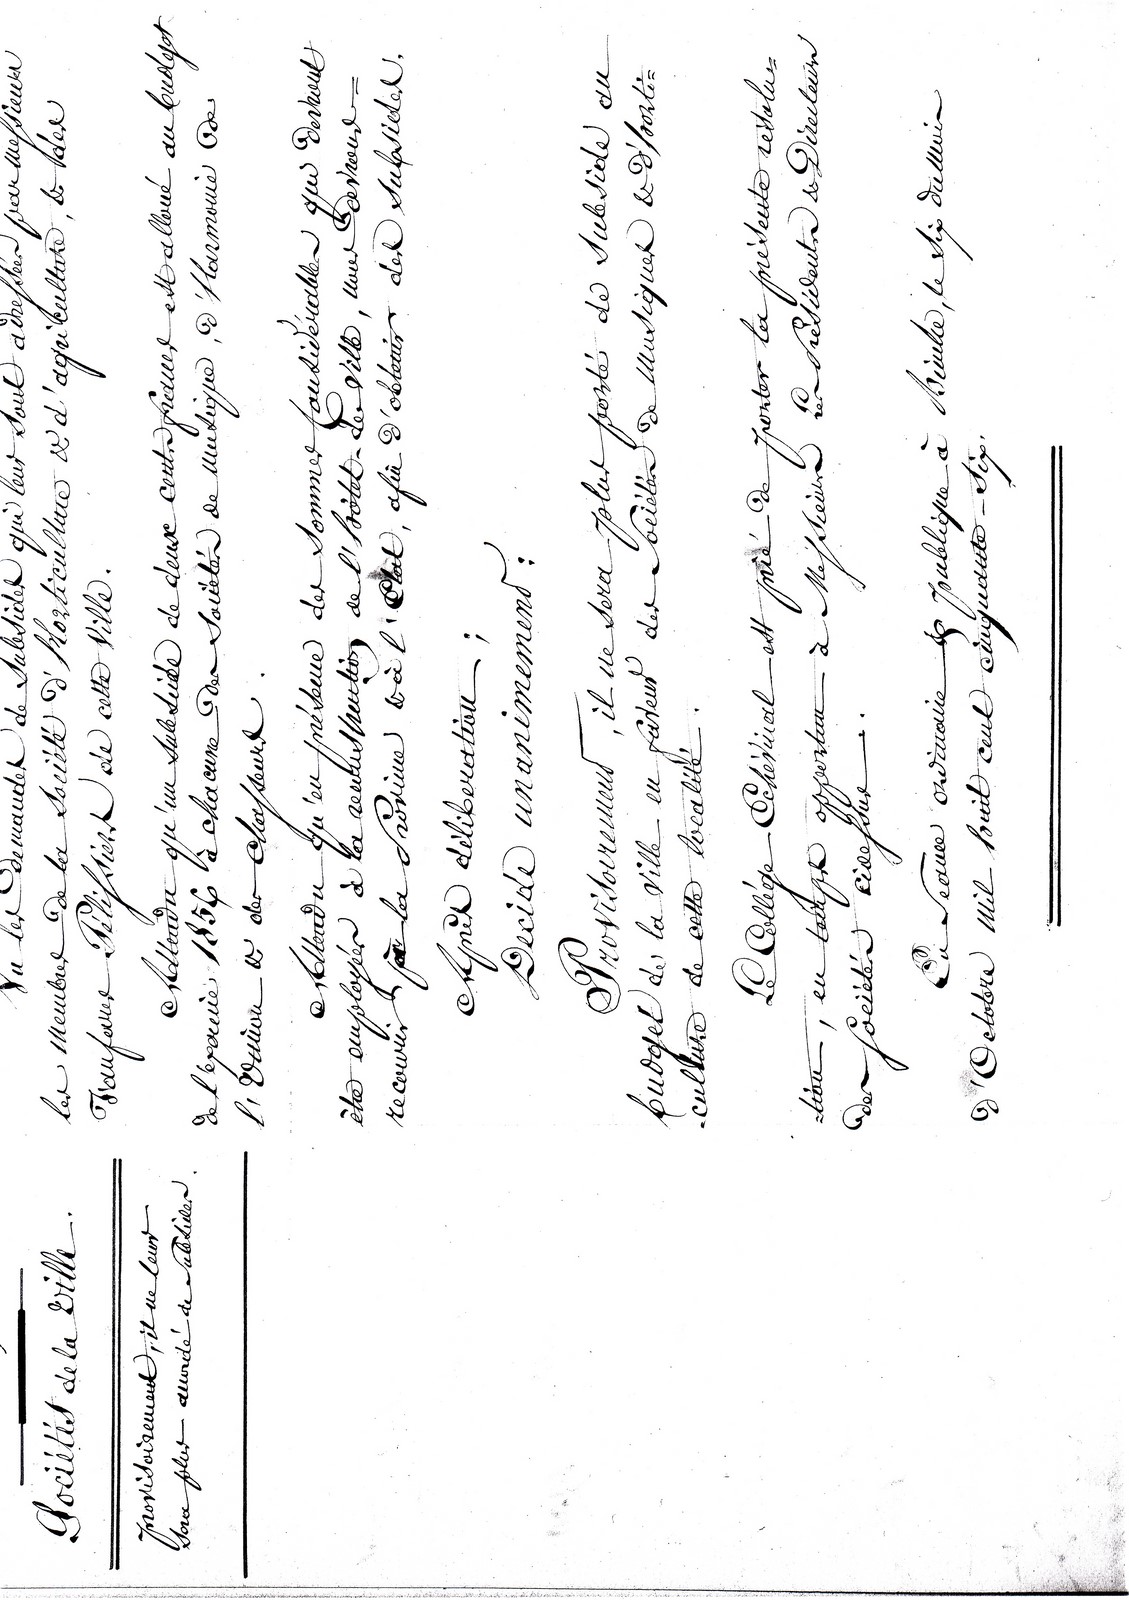 Sociétés de la Ville.
Provisoirement, il ne leur
sera plus accordé de Subsides.
Vu les demandes de Subsides qui leur sont adressées par Messieurs
les Membres de la Société d'Horticulture et d'agriculture, et des
Fanfares Pélissiers de cette Ville.
Attendu qu'un subside de deux cents francs est alloué au budget
de l'exercice 1856 à chacune des Sociétés de musique, d'Harmonie de
l'Union et des Chasseurs.
Attendu qu'en présence des sommes considérables qui devront
être employées à la reconstruction de l'hôtel-de-Ville, nous devrons
recourir à la Province et à l'Etat, afin d'obtenir des subsides.
Après délibération ;
Decide unanimement :
Provisoirement, il ne sera plus porté de Subside au
budget de la Ville en faveur des Sociétés de Musiques et d'horti=
-culture de cette localité.
Le Collége Echévinal est prié de porter la présente résolu=
=tion, en temps opportun à Messieurs les Présidents et Directeurs
des Sociétés susdites.
En Séance ordinaire et publique à Binche, le Six du mois
d'Octobre Mil huit cent cinquante-Six.